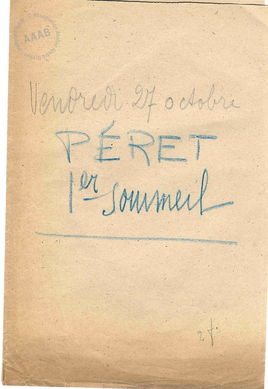 AAAB
Vendredi 27 octobre
PÉRET
1er sommeil
2 f.